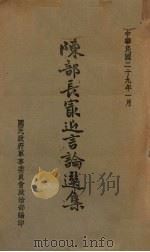 中華民國二十九年一月
陳部長最近言論選集
國民政府軍事委員會政治部編印